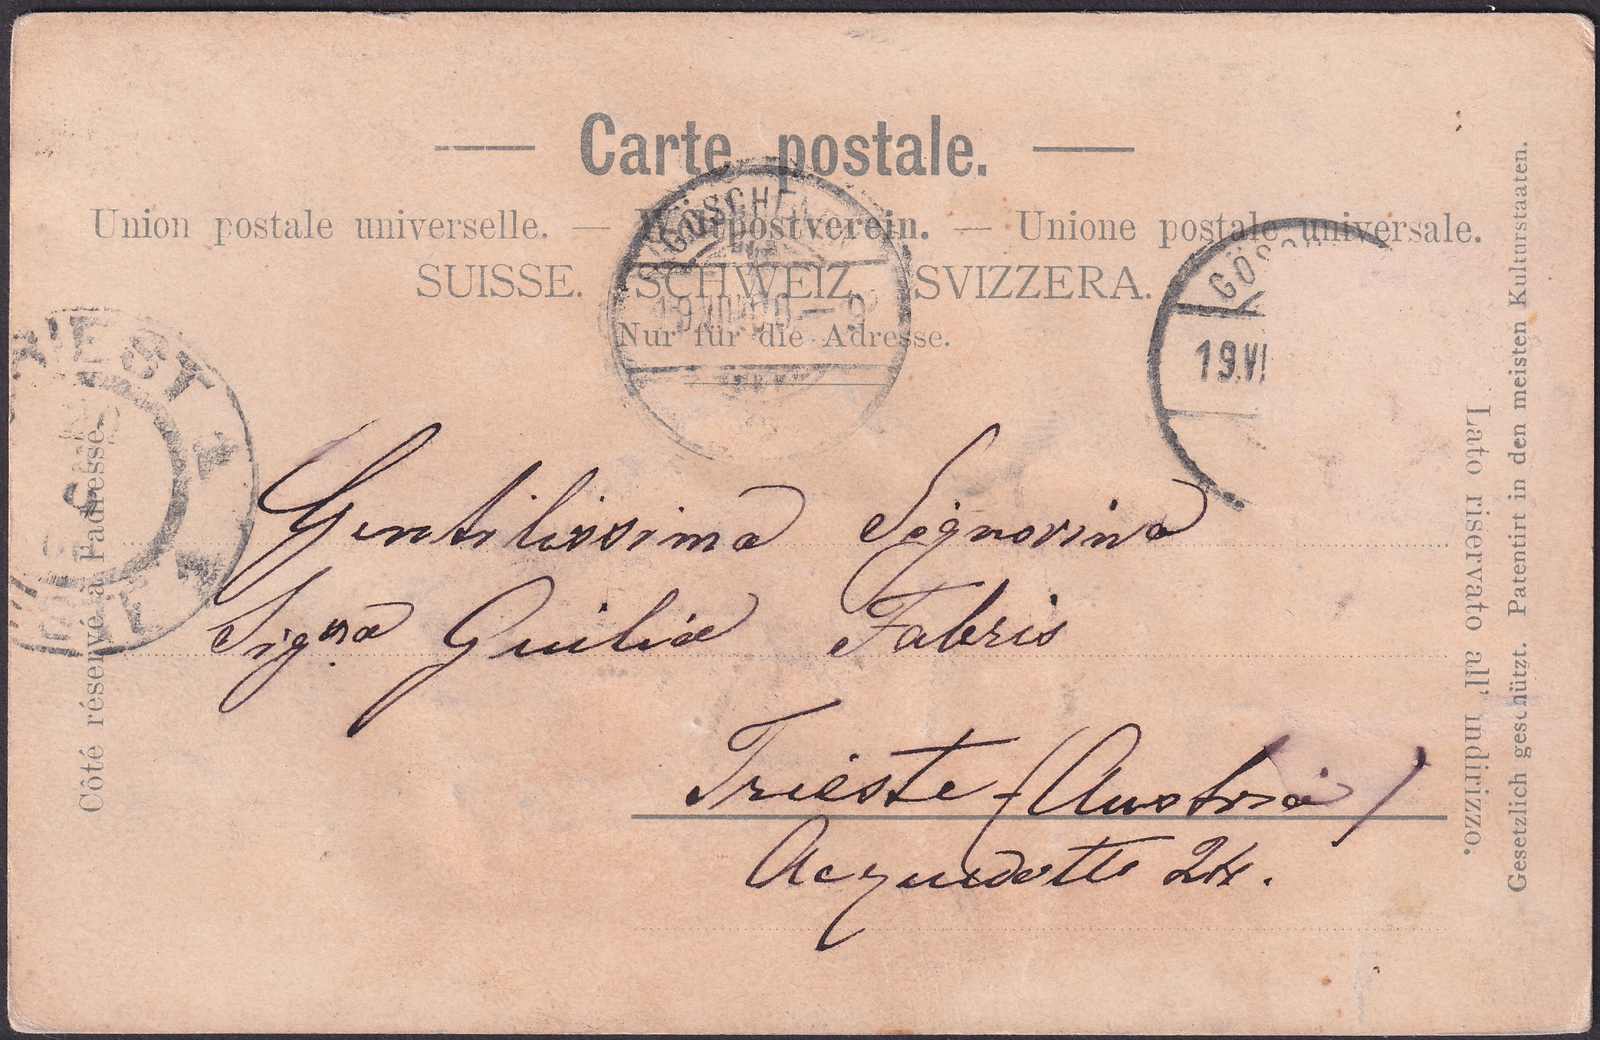 Carte postale.
Union postale universelle. — Weltpostverein. — Unione postale universale.
SUISSE. SCHWEIZ. SVIZZERA.
Nur für die Adresse.
GÖSCHENEN
GÖSCH
19.VI
TRIEST
Côté réservé à l'adresse.
Gentilissima Signorina
Sigra Giulia Fabris
Trieste (Austria)
Acquedotto 24.
Lato riservato all' indirizzo.
Gesetzlich geschützt. Patentirt in den meisten Kulturstaaten.